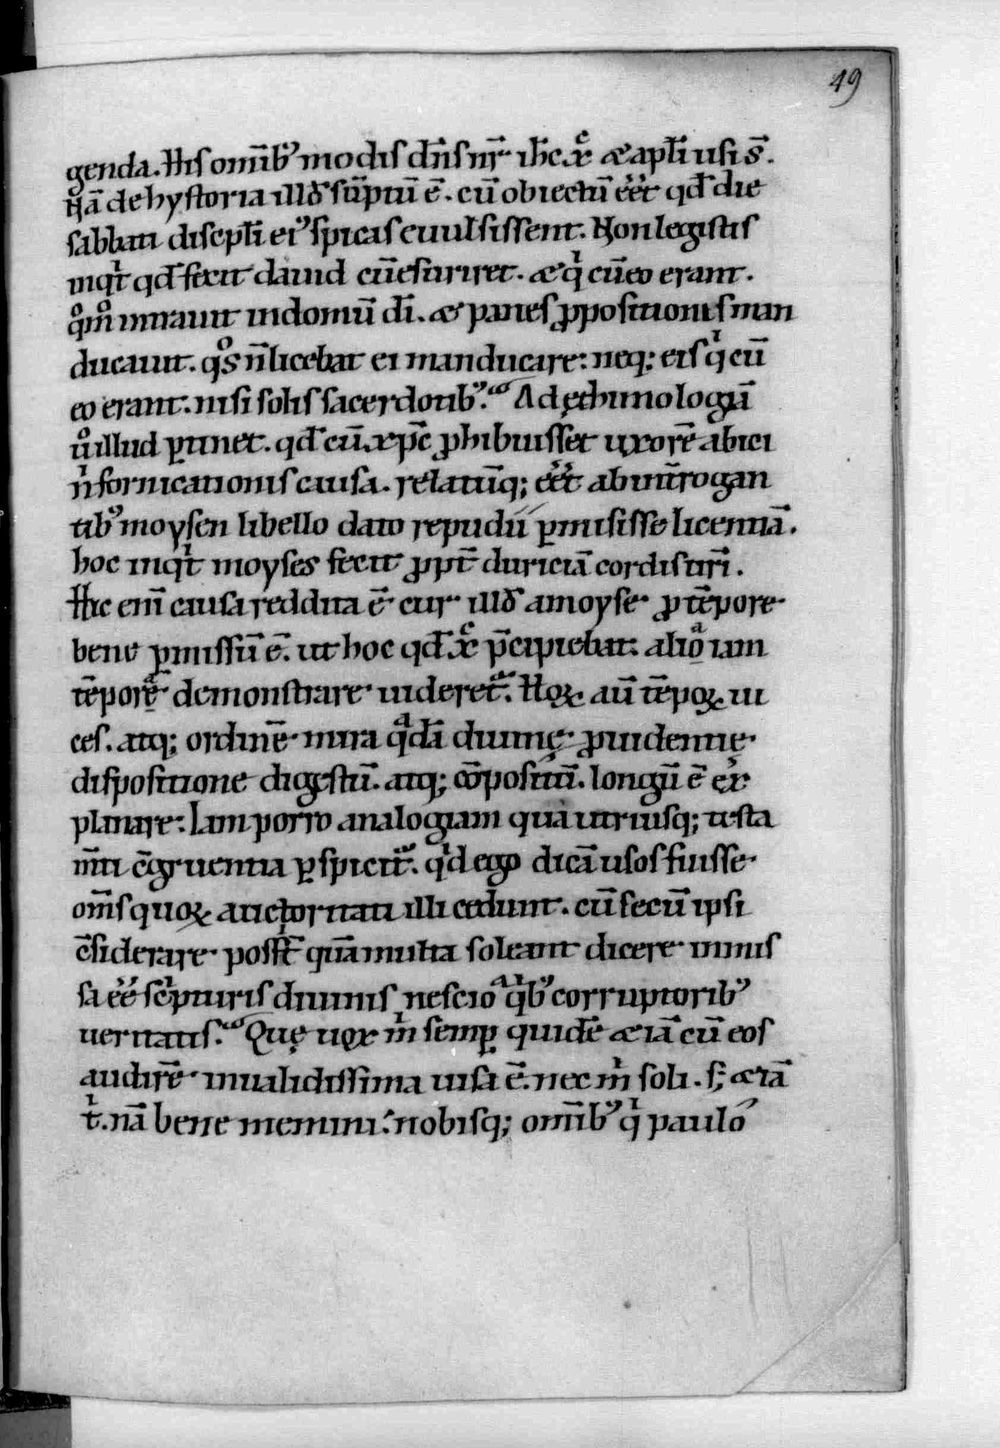 49
genda. His om̅ib᾽ modis dn̅s nr̅ ih̅c xp̅c & apl̅i usi s̅.
Nā de hystoria illđ sūptū ē. cū obiectū eēt qđ die
sabbati discipl̅i ei᾽ spicas euulsissent. Non legistis
inqt̍ qđ fecit dauid cū esuriret. & q̍ cū eo erant.
qm̊o intrauit in domū dī. & panes ꝓpositionis man
ducauit. q̊s n̄ licebat ei manducare: neq; eis q̍ cū
eo erant. nisi solis sacerdotib᾽. Ad ęthimologiā
ů illud ꝑtinet. qđ cū xp̅c ꝓhibuisset uxorē abici
n̍ fornicationis causa. relatūq; eēt ab int̅rogan
tib᾽ moysen libello dato repudii ꝑmisisse licentiā.
hoc inqt̍ moyses fecit ꝓpt̅ duriciā cordis ur̅i.
Hic eni̅ causa reddita ē cur illđ a moyse ꝓ tēpore
bene ꝑmissū ē. ut hoc qđ xp̅c p̄cipiebat. alioꝝ iam
tēporē demonstrare uideret᾽. Hoꝝ au̅ tēpoꝝ ui
ces. atq; ordinē mira qᵃdā diuinę ꝓuidentię
dispositione digestū. atq; cōpositū. longū ē ex
planare. Iam porro analogiam qua utriusq; testa
m̅ti c̅gruentia ꝑspicit᾽. q̍d ego dicā usos fuisse
om̅s quoꝝ auctoritati illi cedunt. cū secū ipsi
c̅siderare poss̅t quā multa soleant dicere inmis
sa eē sc̍pturis diuinis nescio q̍b᾽ corruptorib᾽
ueritatis. Quę uox m̍ semꝑ quidē &iā cū eos
audirē inualidissima uisa ē. nec m̍ soli. s; &iā
t̍. nā bene memini. nobisq; om̅ib᾽ q̍ paulo